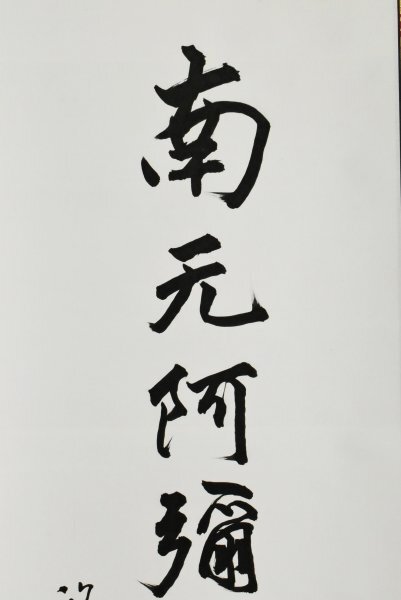 南无阿彌